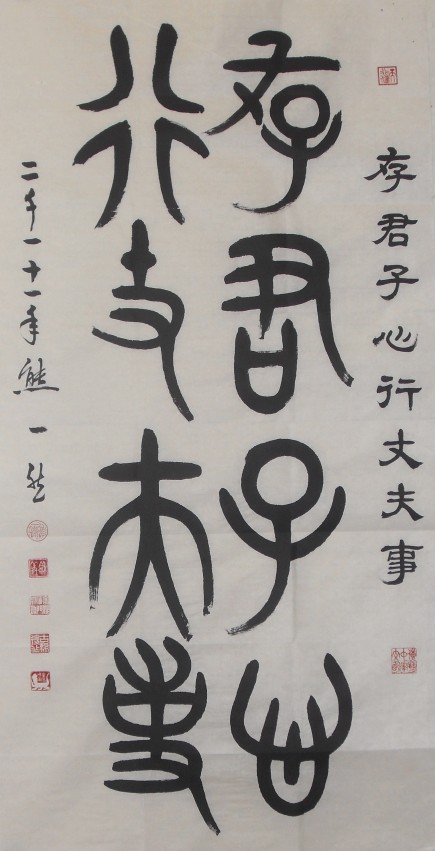 存君子心行丈夫事
存君子心
行丈夫事
二千一十一年熊一然